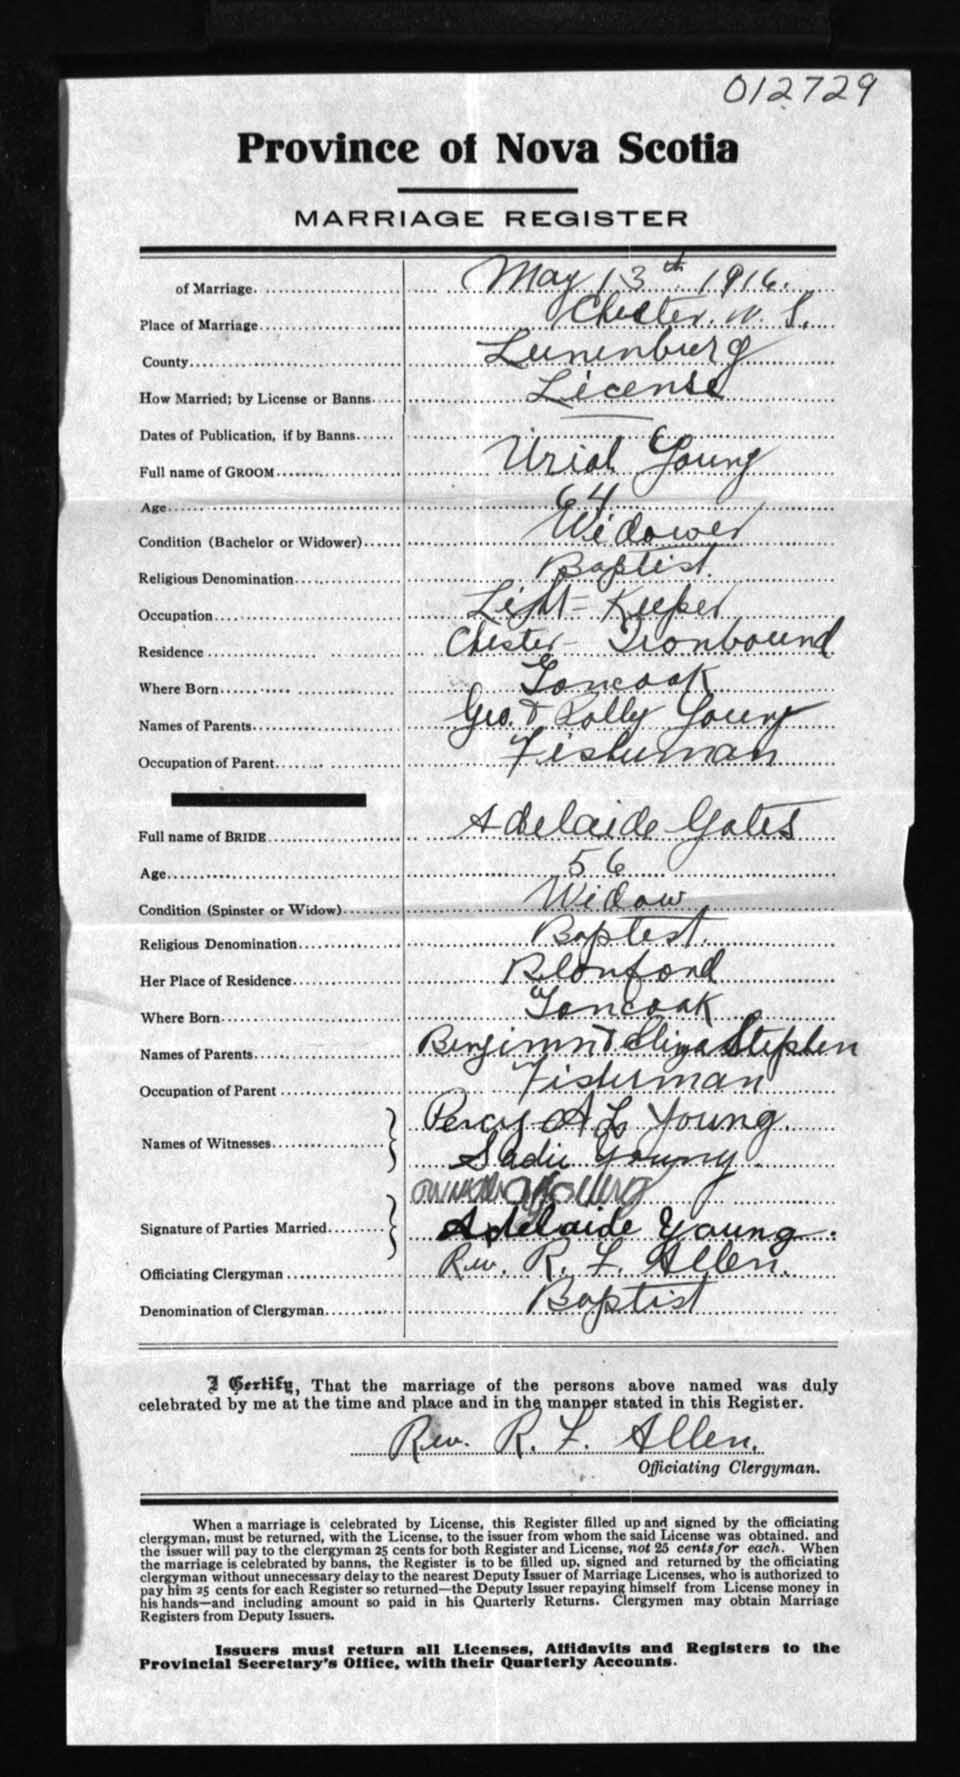 012729
Province of Nova Scotia
MARRIAGE REGISTER
of Marriage. May 13th 1916.
Place of Marriage Chester. N. S.
County Lunenburg
How Married; by License or Banns License
Dates of Publication, if by Banns
Full name of GROOM Uriah Young
Age 64
Condition (Bachelor or Widower) Widower
Religious Denomination Baptist.
Occupation Light-Keeper
Residence Chester Ironbound
Where Born Tancook
Names of Parents Geo. & Young
Occupation of Parent Fisherman
Full name of BRIDE Adelaide Gates
Age 56
Condition (Spinster or Widow) Widow
Religious Denomination Baptist.
Her Place of Residence Blanford
Where Born Tancook
Names of Parents & Eliza Stephen
Occupation of Parent Fisherman
Names of Witnesses Percy A L Young.
Sadie Young.
Young
Signature of Parties Married Adelaide Young.
Officiating Clergyman Rev. R. F. Allen.
Denomination of Clergyman Baptist
I Certify, That the marriage of the persons above named was duly
celebrated by me at the time and place and in the manner stated in this Register.
Rev. R. F. Allen.
Officiating Clergyman.
When a marriage is celebrated by License, this Register filled up and signed by the officiating
clergyman, must be returned, with the License, to the issuer from whom the said License was obtained. and
the issuer will pay to the clergyman 25 cents for both Register and License, not 25 cents for each. When
the marriage is celebrated by banns, the Register is to be filled up, signed and returned by the officiating
clergyman without unnecessary delay to the nearest Deputy Issuer of Marriage Licenses, who is authorized to
pay him 25 cents for each Register so returned—the Deputy Issuer repaying himself from License money in
his hands—and including amount so paid in his Quarterly Returns. Clergymen may obtain Marriage
Registers from Deputy Issuers.
Issuers must return all Licenses, Affidavits and Registers to the
Provincial Secretary's Office, with their Quarterly Accounts.